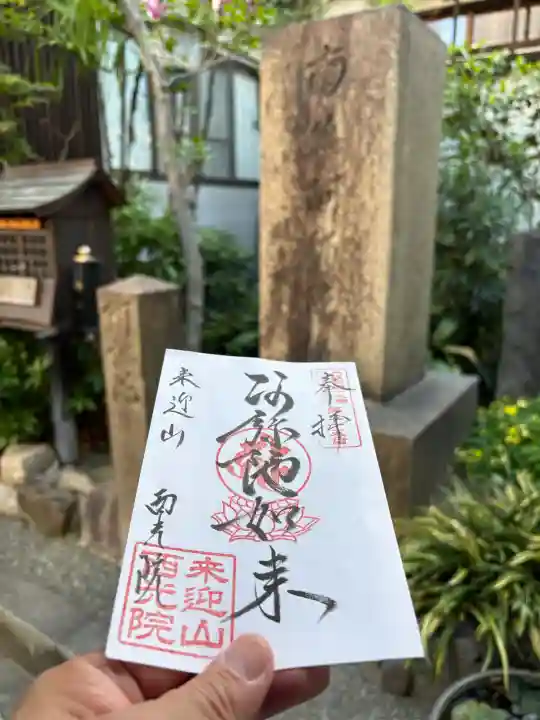 奉拝
阿弥陀如来
来迎山
西光院
来迎山
西光院
南